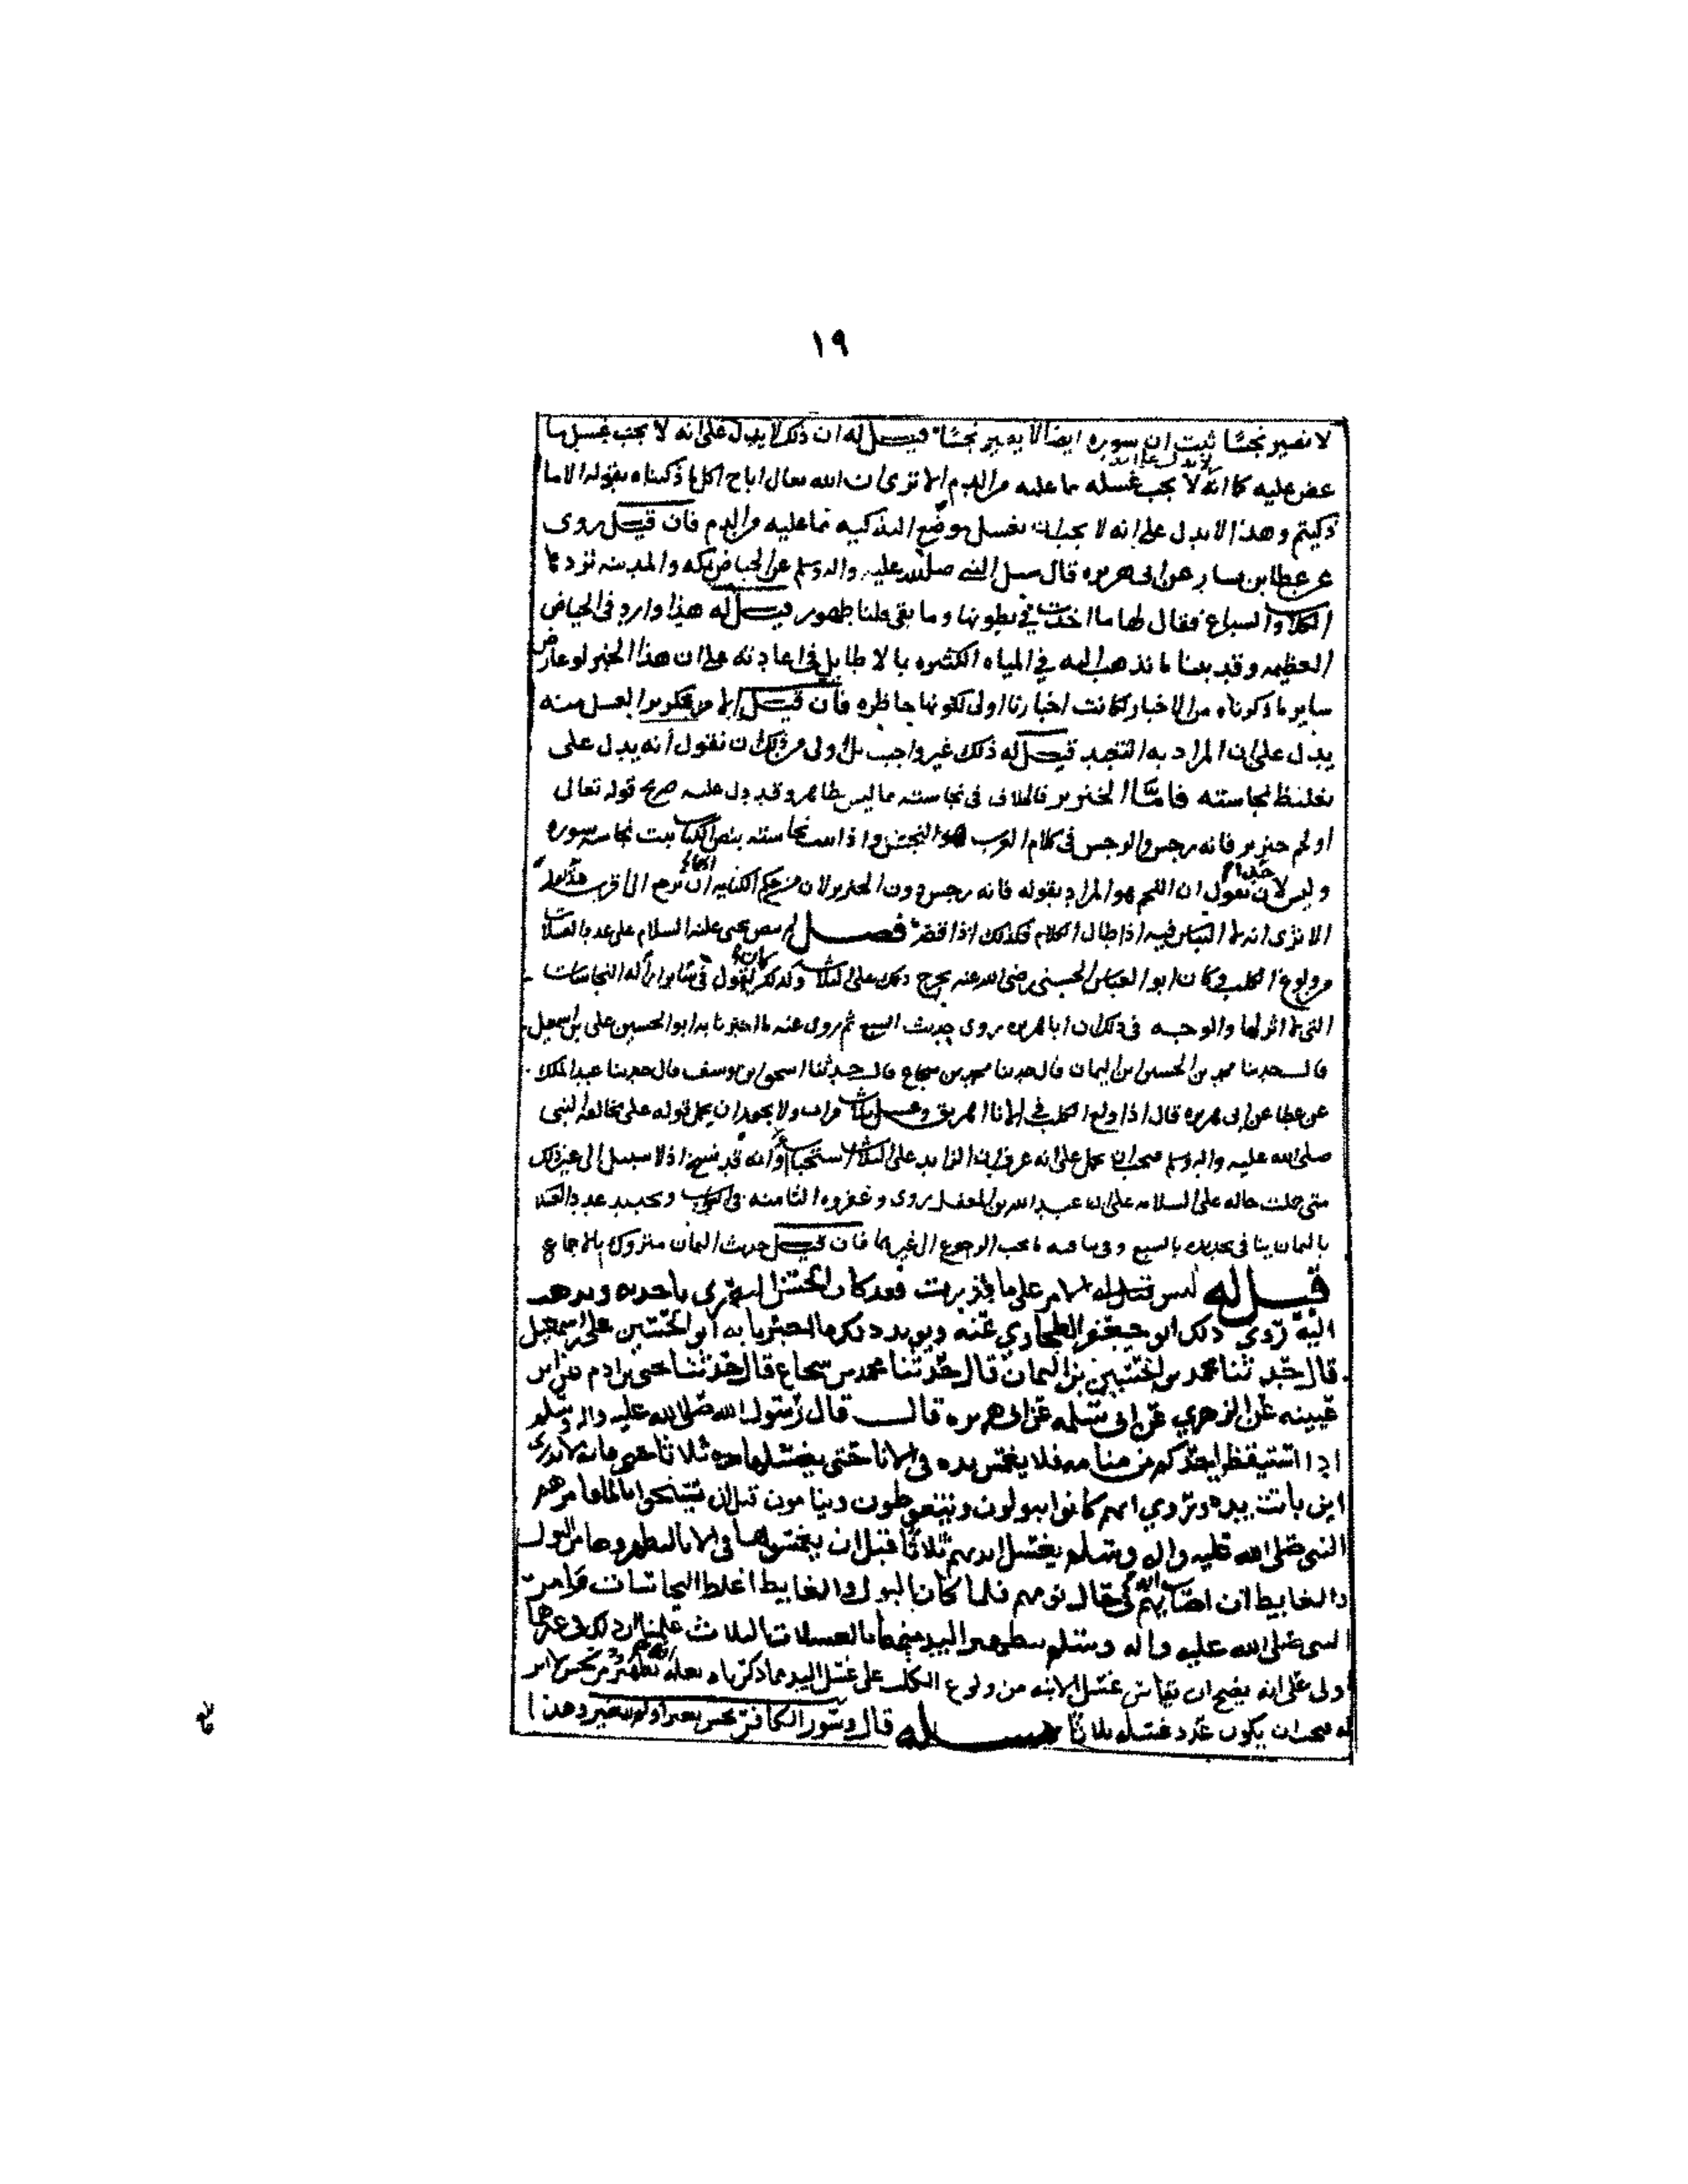 ١٩
لا تصير نجسًا ثبت ان سوره ايضا لا يصير نجسًا قيل له ان ذلك لا يدل على انه لا يجب غسل ما
عض عليه كما انه لا يجب غسله مما عليه من الدم الا ترى ان الله تعالى اباح اكل ما ذكيناه بقوله الا ما
ذكيتم وهذا لا يدل على انه لا يجب ان نغسل موضع التذكيه مما عليه من الدم فان قيل روى
عن عطا بن يسار عن ابى هريره قال سئل النبي صلى الله عليه واله وسلم عن الحياض بمكه والمدينه تردها
الكلاب والسباع فقال لها ما اخذت في بطونها وما بقى فلنا طهور قيل له هذا وارد في الحياض
العظيمه وقد بينا ما نذهب اليه في المياه الكثيره بما لا طايل في اعادته على ان هذا الخبر لو عارض
ساير ما ذكرناه من الاخبار لكانت اخبارنا اولى لكونها حاظره فان قيل الامر بتكرير الغسل منه
يدل على ان المراد به التعبد قيل له ذلك غير واجب بل اولى من ذلك ان نقول انه يدل على
تغليظ نجاسته فامّا الخنزير فالخلاف فى نجاسته ما ليس بظاهر وقد دل عليه صريح قوله تعالى
او لحم خنزير فانه رجس والرجس فى كلام العرب هو النجس واذا ثبت نجاسته بنص الكتاب ثبت نجاسة سوره
وليس لاحد ان يقول ان اللحم هو المراد بقوله فانه رجس دون الخنزير لان من حكم الكنايه ان ترجع الى اقرب
الا ترى انه لا التباس فيه اذا طال الكلام فكذلك اذا قصر فصل لم ينص يحيى عليه السلام على عدد الغسلات
من ولوغ الكلب وكان ابو العباس الحسنى رضى الله عنه يخرج ذلك على الثلاث وكذلك كان يقول في ساير النجاسات
التى لا اثر لها والوجه في ذلك ان ابا هريره روى حديث السبع ثم روى عنه ما اخبرنا به ابو الحسين على بن اسمعيل
قال حدثنا محمد بن الحسين بن اليمان قال حدثنا محمد بن شجاع قال حدثنا اسحق بن يوسف قال حدثنا عبد الملك
عن عطا عن ابى هريره قال اذا ولغ الكلب في الانا اهريق وغسل ثلاث مرات ولا يجوز ان يحمل قوله على مخالفه النبى
صلى الله عليه واله وسلم فيجب ان يحمل على انه عرف ان الزايد على الثلاث استحبابا وانه قد نسخ اذ لا سبيل الى غير ذلك
متى حملت حاله على السلامه على ان عبد الله بن المغفل يروى وعفروه الثامنه في التراب وتحديد عدد الغسلات
بالثمان ينافى تحديده بالسبع وفي تنافيه ما يجب الرجوع الى غيرهما فان قيل حديث الثمان متروك بالاجماع
قيل له ليس الامر على ما قدرت فقد كان الحسن البصرى ياخذ به ويذهب
اليه روى ذلك ابو جعفر الطحاوي عنه ويويد ذلك ما اخبرنا به ابو الحسين على بن اسمعيل
قال حدثنا محمد بن الحسين بن اليمان قال حدثنا محمد بن شجاع قال حدثنا يحيى بن ادم عن ابن
عيينه عن الزهري عن ابى سلمه عن ابى هريره قال قال رسول الله صلى الله عليه واله وسلم
اذا استيقظ احدكم من منامه فلا يغمس يده في الانا حتى يغسلها ثلاثا فانه لا يدرى
اين باتت يده وتروي انهم كانوا يبولون ويتغوطون وينامون قبل ان يستنجوا بالماء فامرهم
النبى صلى الله عليه واله وسلم بغسل ايديهم ثلاثا قبل ان يغمسوها في الانا لتطهروها من البول
والغايط ان اصاب ايديهم في حال نومهم فلما كان البول والغايط اغلظ النجاسات وامر
النبى صلى الله عليه واله وسلم بتطهير اليد منهما بالغسلات الثلاث علمنا ان ذلك في غيرهما
اولى على انه يصح ان يقاس غسل الانيه من ولوغ الكلب على غسل اليد مما ذكرناه بعله
فيجب ان يكون عدد غسله ثلاثا مسئله قال وسور الكافر نجس تغير او لم يتغير وهذا